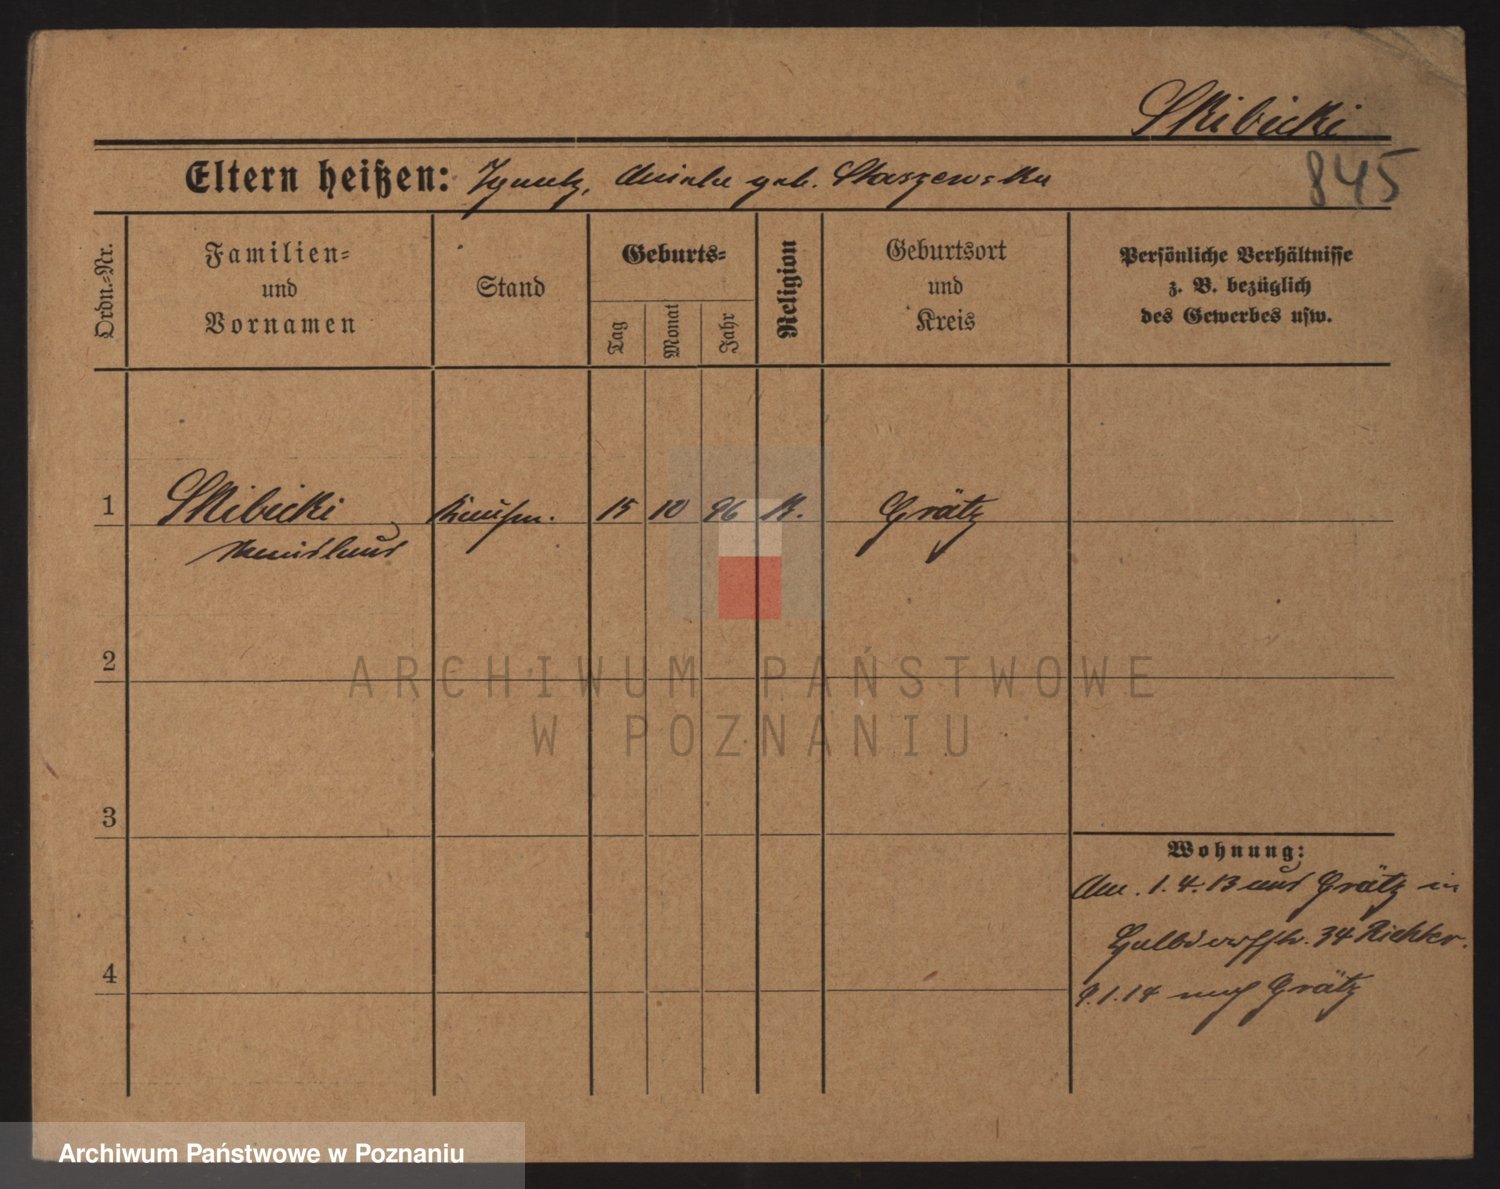 Skibicki
845
Eltern heißen: Ignatz, geb. Staszewska
Ordn.-Nr.
Familien- und Vornamen
Stand
Geburts-
Tag
Monat
Jahr
Religion
Geburtsort und Kreis
Persönliche Verhältnisse
z. B. bezüglich
des Gewerbes usw.
1 Skibicki Kaufm. 15 10 96 K. Grätz
Stanislaus
2
3
4
Wohnung:
1.4.13 aus Grätz in
34 Richter.
9.1.14 nach Grätz
ARCHIWUM PAŃSTWOWE
W POZNANIU
Archiwum Państwowe w Poznaniu